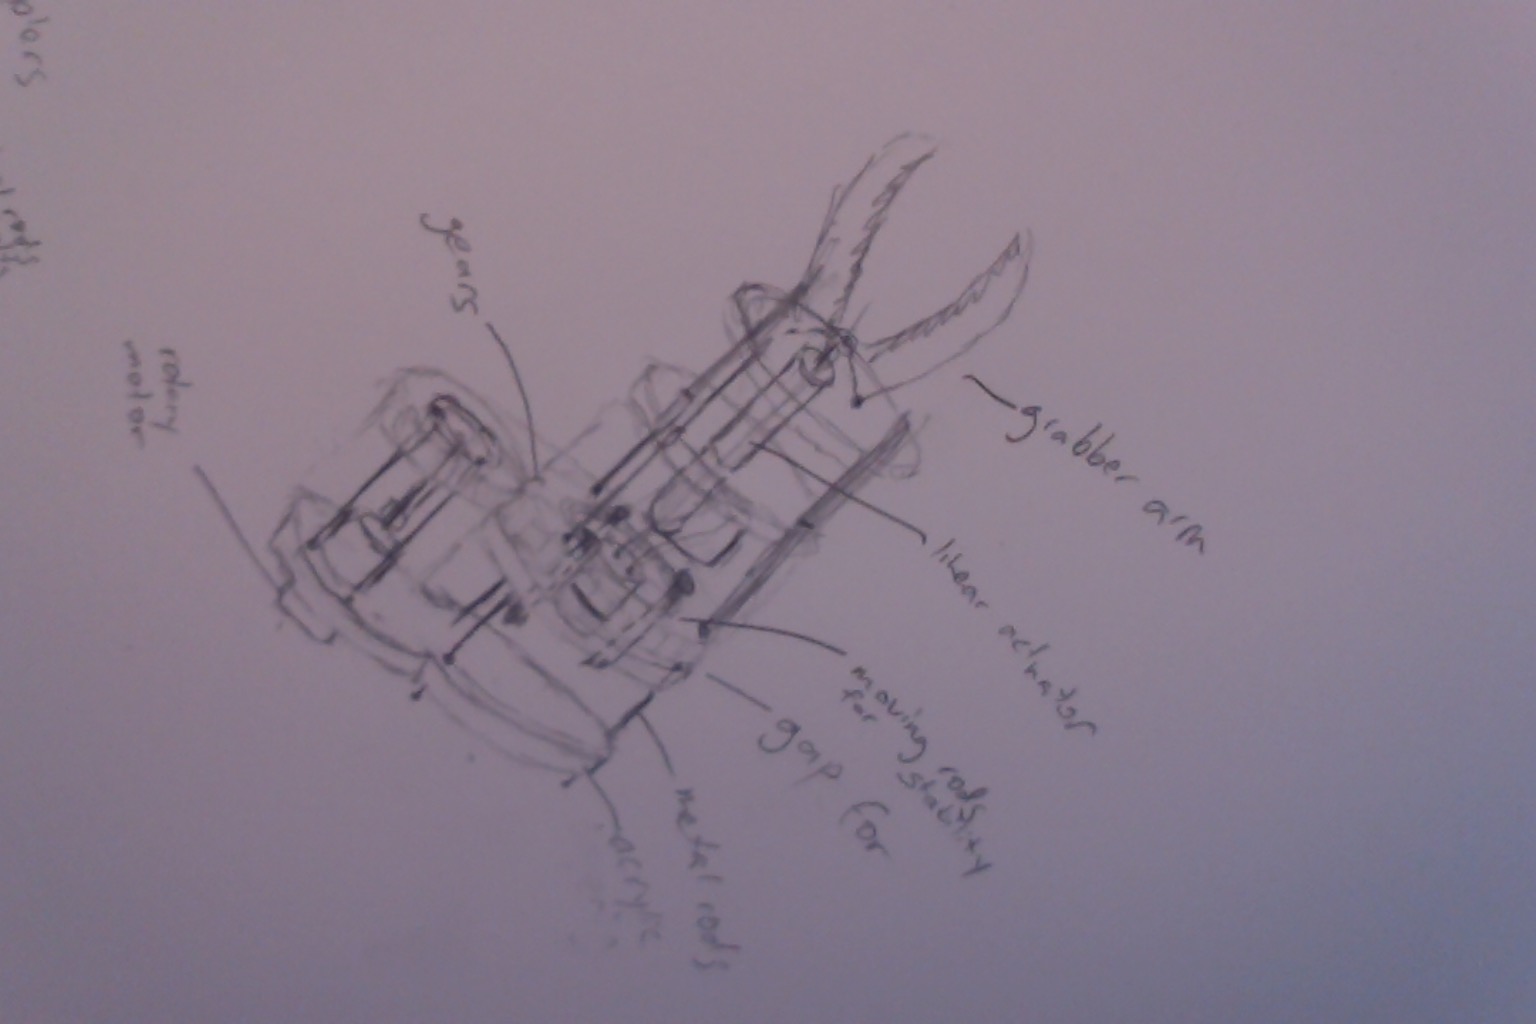 gears
rotary
motor
grabber arm
linear actuator
moving rods
for stability
gap for
metal rods
acrylic